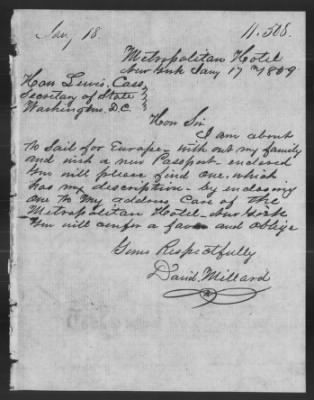 Jany 18. 11.508.
Metropolitan Hotel
New York Jany 17th 1859
Hon Lewis. Cass
Secretary of State
Washington. D.C.
Hon Sir
I am about
to Sail for Europe - with out my family
and wish a new Passport - enclosed
you will please find one. which
has my description - by inclosing
one to my address Care of the
Metropolitan Hotel - New York
You will confer a favor and oblige
Yours Respectfully
David. Millard